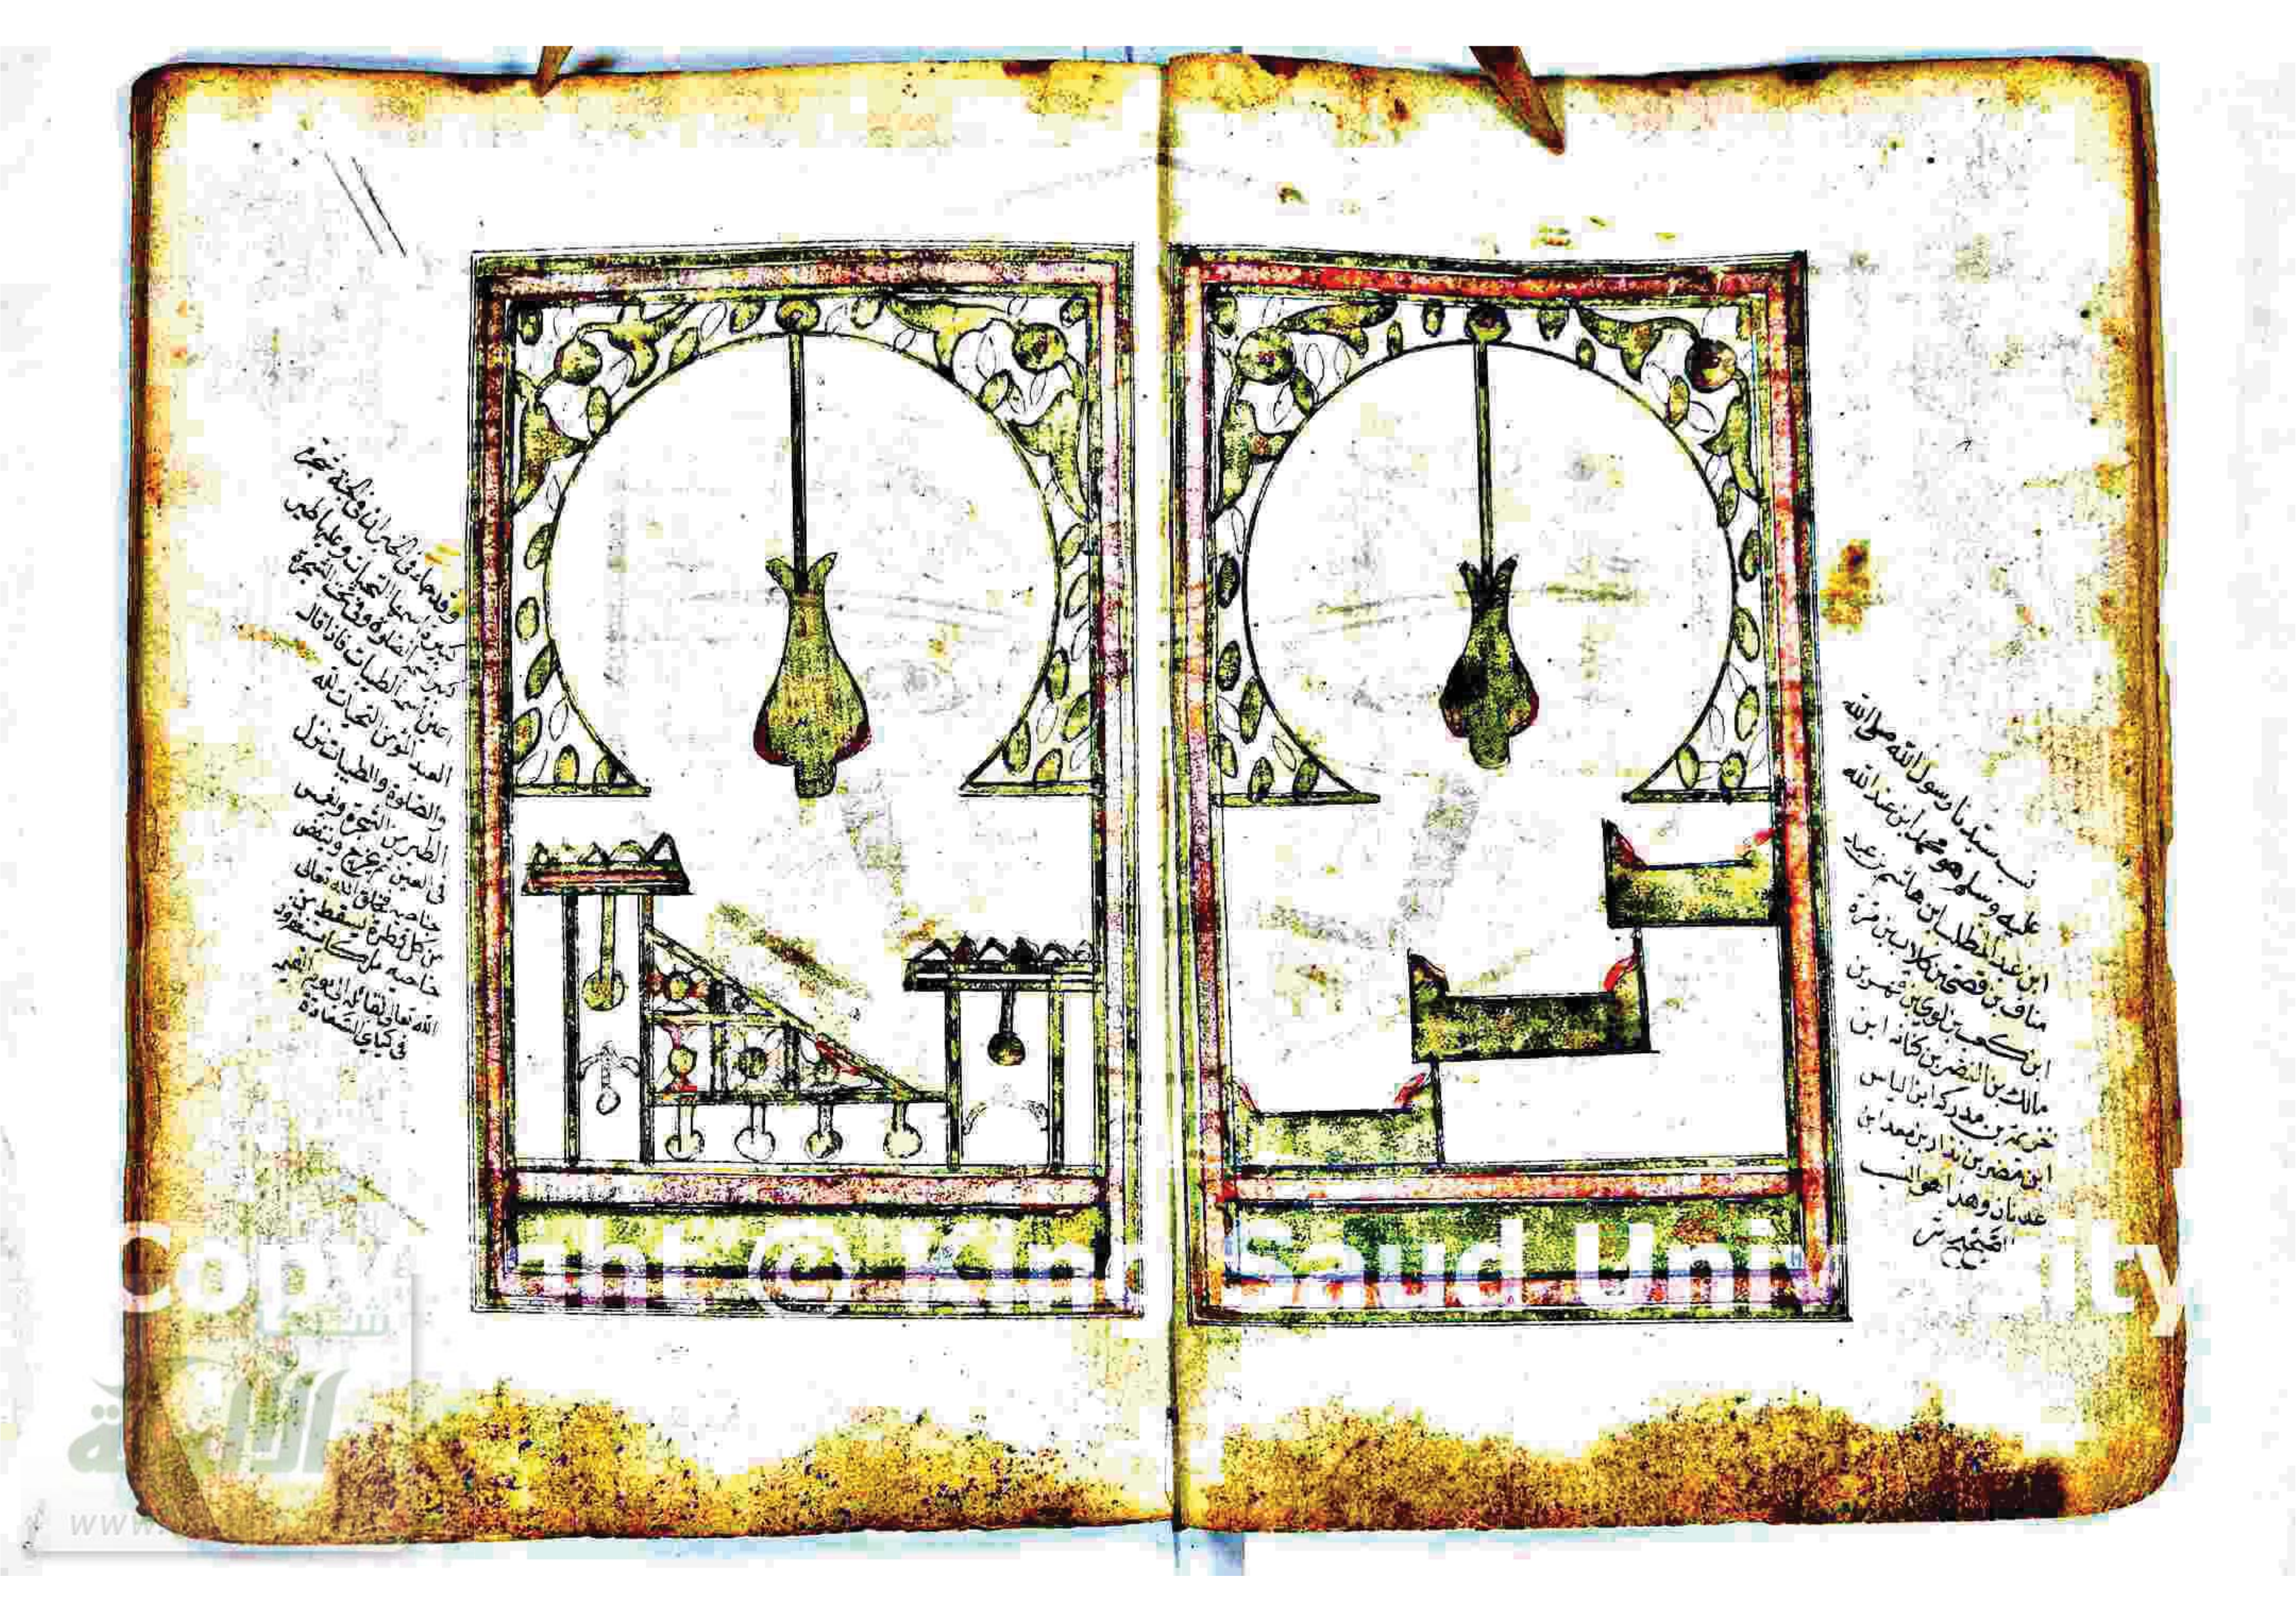 نسب سيدنا رسول الله صلى الله
عليه وسلم هو محمد ابن عبد الله
ابن عبد المطلب ابن هاشم بن عبد
مناف بن قصي بن كلاب بن مرة
ابن كعب بن لوي بن فهر بن
مالك بن النضر بن كنانه ابن
خزيمة بن مدركه ابن الياس
ابن مضر بن نزار بن معد ابن
عدنان وهذا هو النسب
الصحيح
وقد جاء في الخبر ان في الجنة شجرة
كبيرة اسمها التحيات وعليها طير
كبير اسمه الصلوة وتحت الشجرة
اعين اسمه الطيبات فاذا قال
العبد المؤمن التحيات لله
والصلوة والطيبات نزل
الطير من الشجرة وغمس
في العين ثم خرج وينفض
جناحيه فخلق الله تعالى
من كل قطرة تسقط من
جناحيه ملكا يستغفرون
الله تعالى لقائله الى يوم القيمة
Copyright © King Saud University
شبكة
الألوكة
www.